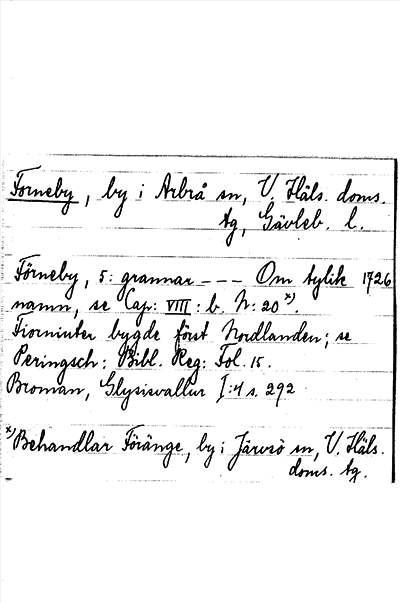 Forneby, by i Arbrå sn, V. Häls. doms.
tg, Gävleb. l.
Förneby, 5: grannar - - - Om dylik 1726
namn, se Cap: VIII: b. N: 20 x).
Fiorniuter bygde först Nordlanden; se
Peringsch: Bibl. Reg: Fol. 15.
Broman, Glysisvallur I:4 s. 292
x) Behandlar Föränge, by i Järvsö sn, V. Häls.
doms. tg.